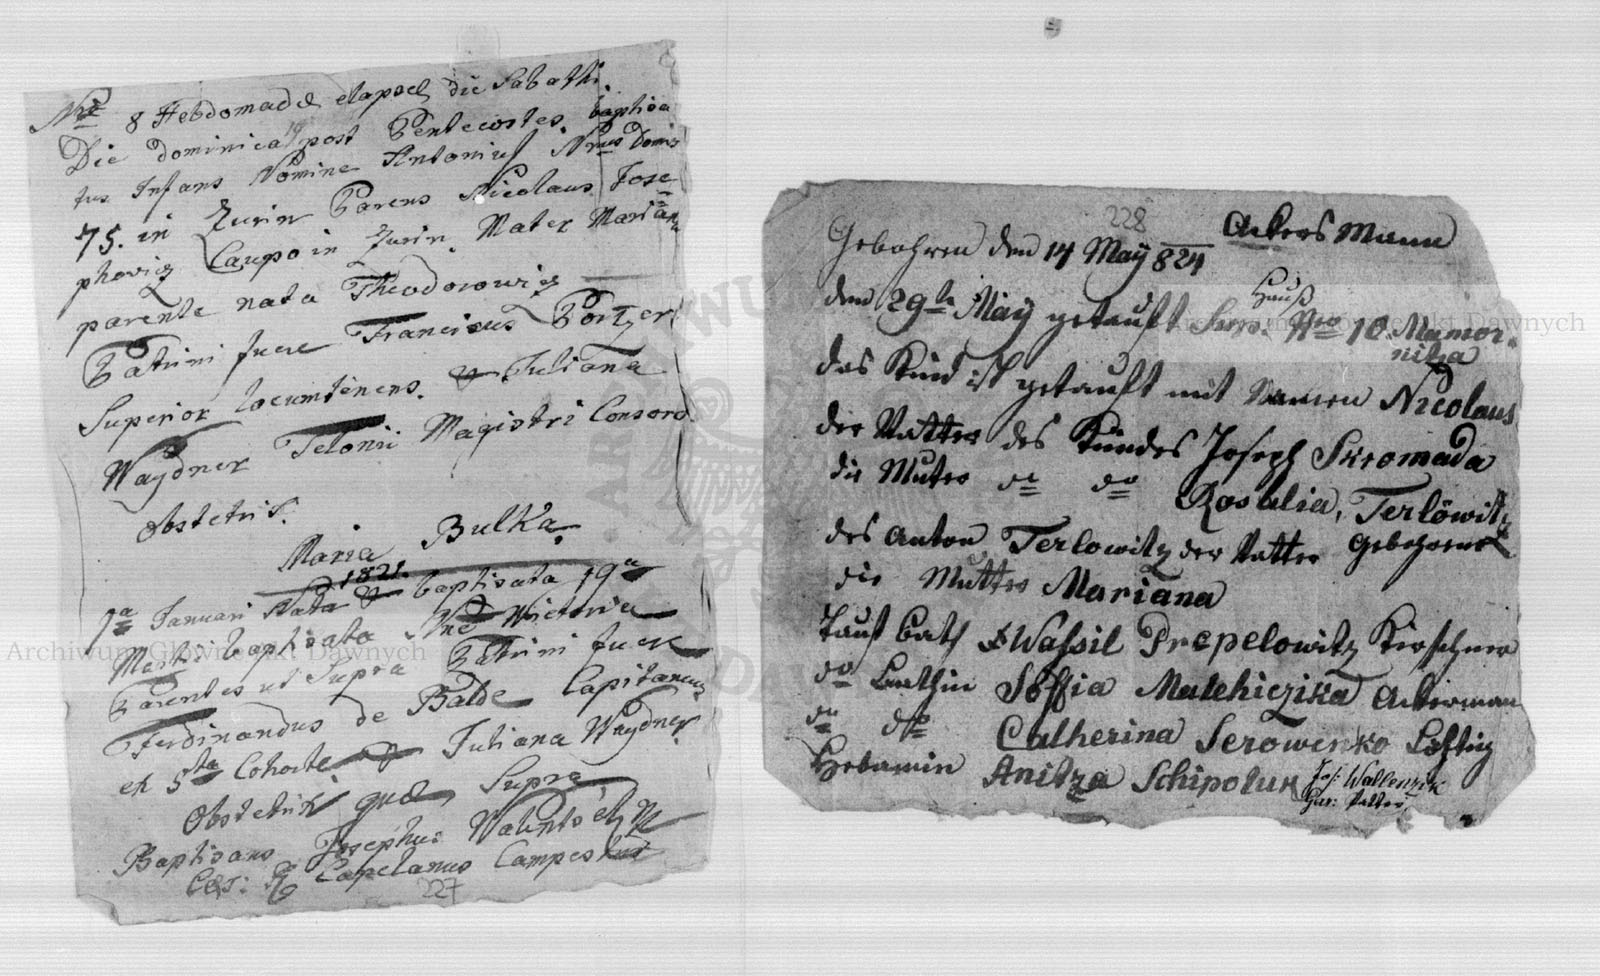 Nro 8 Hebdomade elapse die Sabathi
Die dominica 19 post Pentecostes baptisa
tus Infans Nomine Antonius Nrus Domus
75. in Zurin Parens Nicolaus Jose=
phovicz Caupo in Zurin. Mater Mariana
parente nata Theodorowicz
Patrini fuere Franciscus Portzer
Superior locumtenens. & Juliana
Waydner Telonii Magistri Consors.
Obstetrix.
Maria Bulka.
1821.
1a Januari Nata & baptisata 19a
Marti baptisata Nne Victoria
Parentes ut Supra Patrini fuere
Ferdinandus de Balde Capitaneus
ex 5ta Cohorte & Juliana Waydner
Obstetrix quae Supra
Baptisans Josephus
Capelanus Campestris
227
228
Ackers Mann
Gebohren den 14 May 824
den 29te May getauft Nro 10. Mamor=
Hauß
nitza
das Kind ist getauft mit Namen Nicolaus
der Vatter des Kindes Joseph Skromada
die Muter do do Rosalia, Terlöwitz
des Anton Terlowitz der Vatter Gebohrene
die Mutter Mariana
Tauf Path Wassil Prepelowitz Kirschner
do Pathin Soffia Malehiczika Ackerman
do do Catherina Serowenko
Hebamin Anitza Schipotur
Jos: Wallenzik
Gar: Patter
Archiwum Główne Akt Dawnych
Archiwum Główne Akt Dawnych